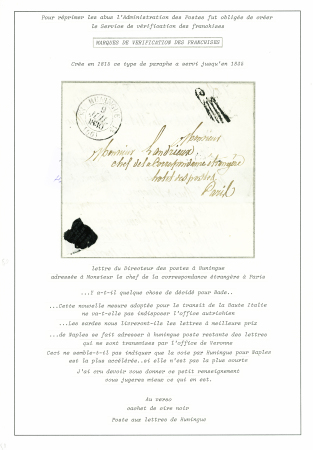 Pour réprimer les abus l'Administration des Postes fut obligée de créer
le Service de vérification des franchises
MARQUES DE VERIFICATION DES FRANCHISES
Crée en 1815 ce type de paraphe a servi jusqu'en 1830
HUNINGUE
Monsieur
Monsieur
chef de la Correspondance étrangère
hotel des postes
Paris
lettre du Directeur des postes à Huningue
adressée à Monsieur le chef de la correspondance étrangère à Paris
...Y a-t-il quelque chose de décidé pour Bade..
...Cette nouvelle mesure adoptée pour le transit de la Haute Italie
ne va-t-elle pas indisposer l'office autrichien
...Les sardes nous livreront-ils les lettres à meilleurs prix
...de Naples se fait adresser à huningue poste restante des lettres
qui me sont transmises par l'office de Veronne
Ceci me semble-t-il pas indiquer que la voie par Huningue pour Naples
est la plus accélérée..si elle n'est pas la plus courte
J'ai cru devoir vous donner ce petit renseignement
vous jugerez mieux ce qui en est.
Au verso
cachet de cire noir
Poste aux lettres de Huningue